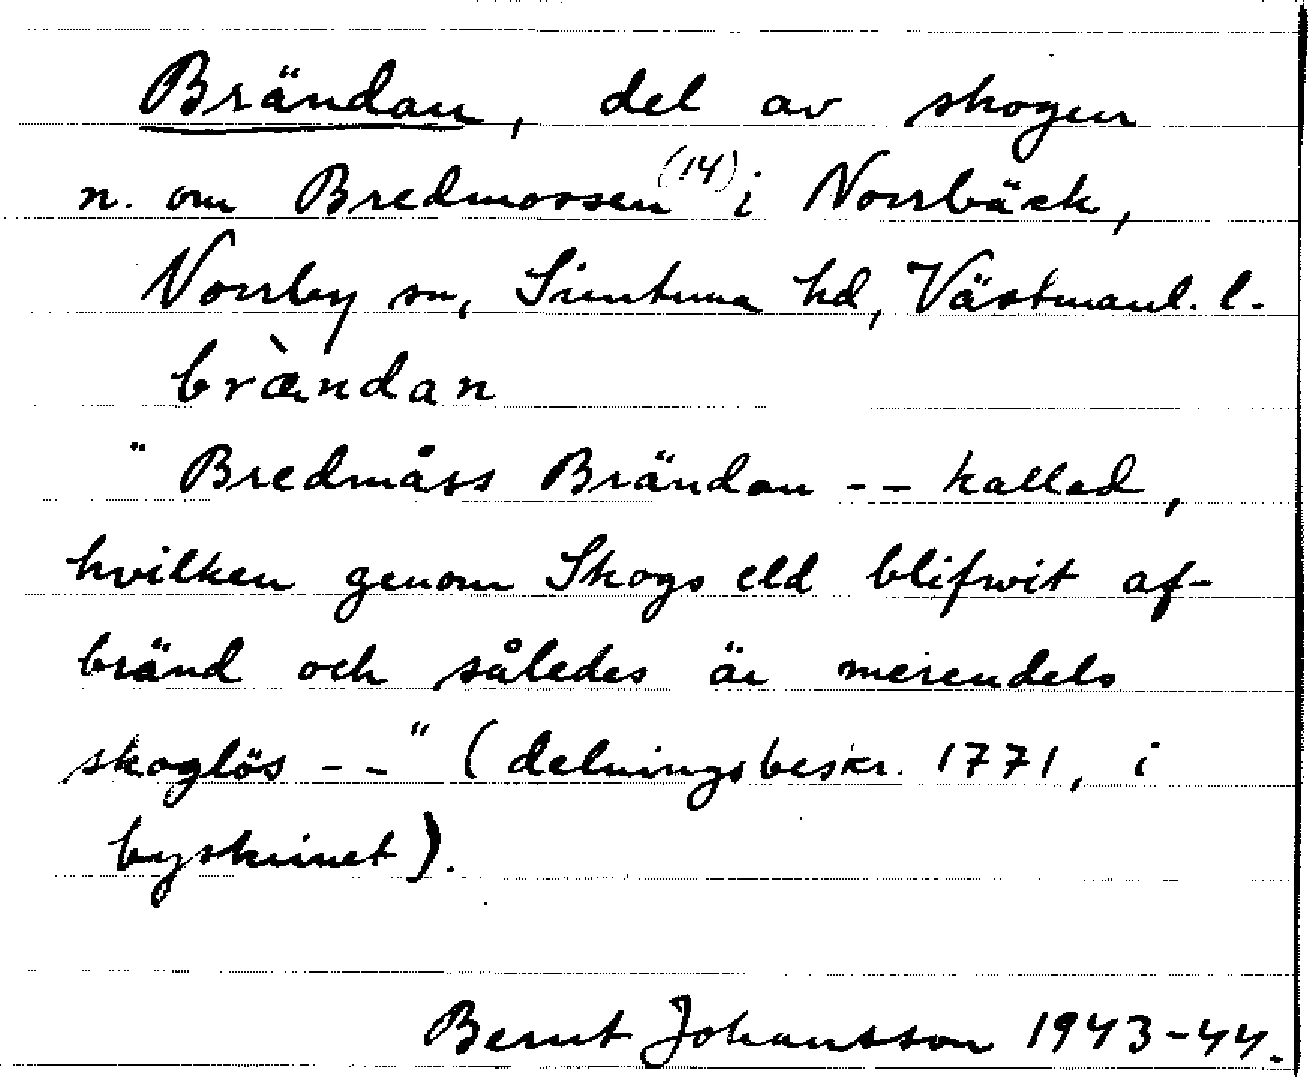 Brändan, del av skogen
n. om Bredmossen (14) i Norrbäck,
Norrby sn, Simtuna hd, Västmanl. l.
bræ̀ndan
" Bredmåss Brändan -- kallad,
hvilken genom Skogs eld blifwit af-
bränd och således är merendels
skoglös -- " (delningsbeskr. 1771, i
byskrinet).
Bernt Johansson 1943-44.